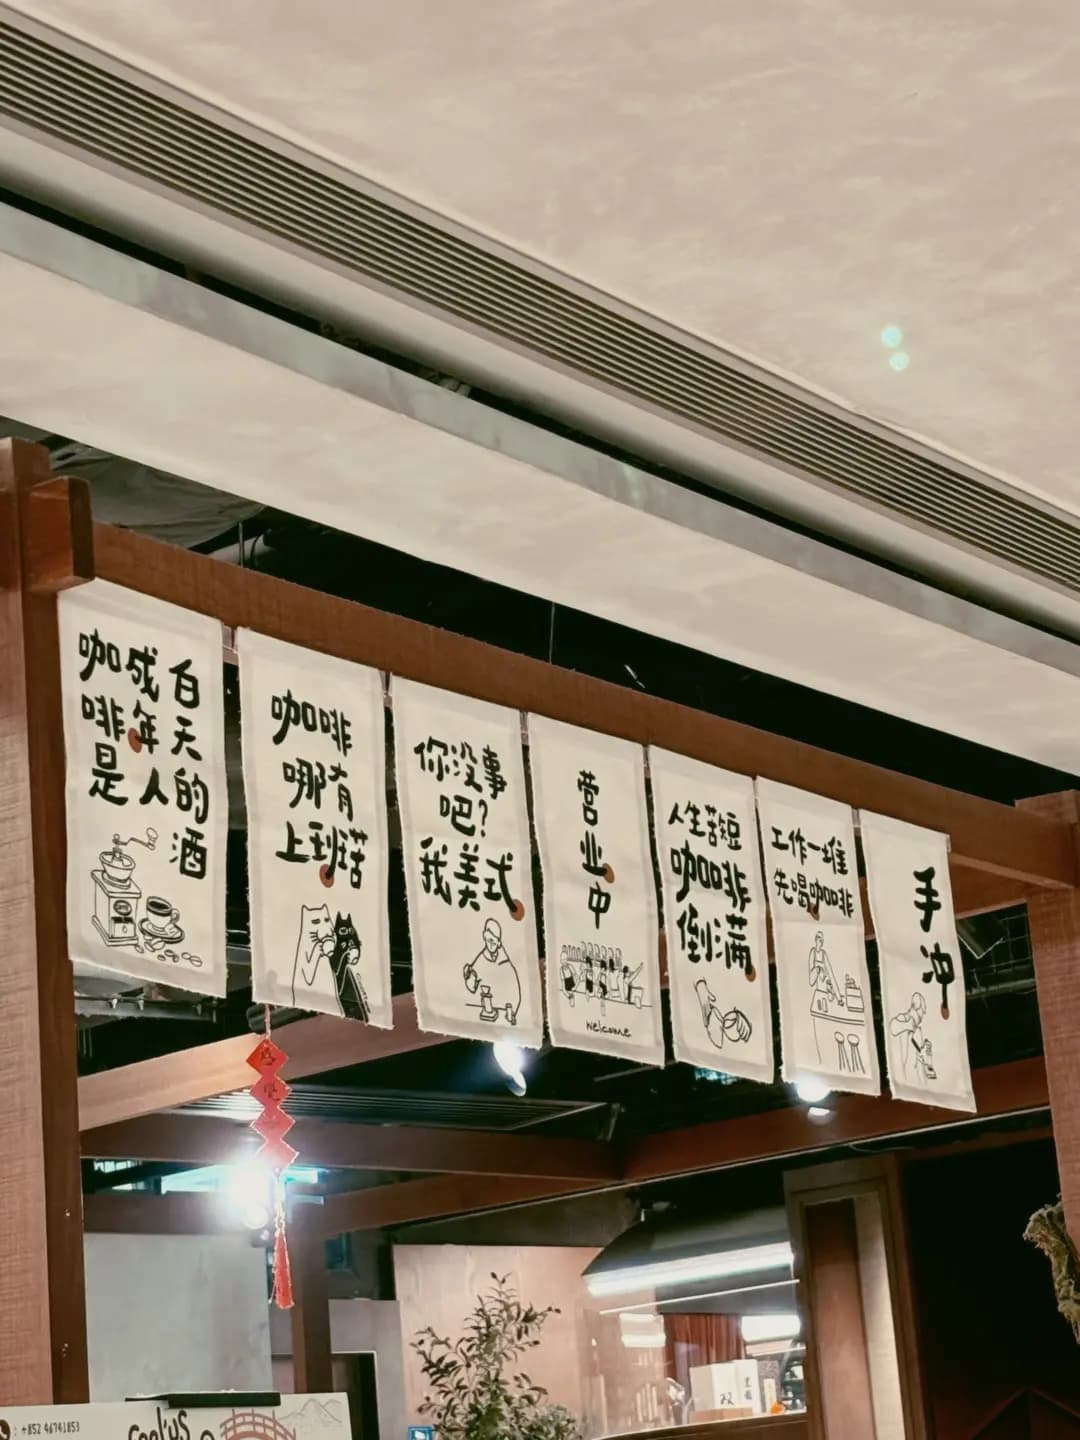 咖啡是
成年人
白天的酒
咖啡
哪有
上班苦
你没事
吧?
我美式
营业中
welcome
人生苦短
咖啡
倒满
工作一堆
先喝咖啡
手冲
: +852 46741853